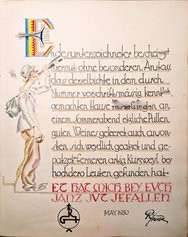 Endesunterzeichneter bescheinigt
hiermit ohne besonderen Anstand
dass derselbichte in dem durch
Nummer vorschriftsmässig kenntlich
gemachten Hause an
einem Sommerabend etliche Pullen
guten Weines geleeret auch anson-
sten sich weidlich geatzet und ge-
pokert ferneren artig Kurzweyl bei
hochdero Leuten gefunden hat
ET HAT MICH BEY EVCH
JANZ JVT JEFALLEN
MAY 1930